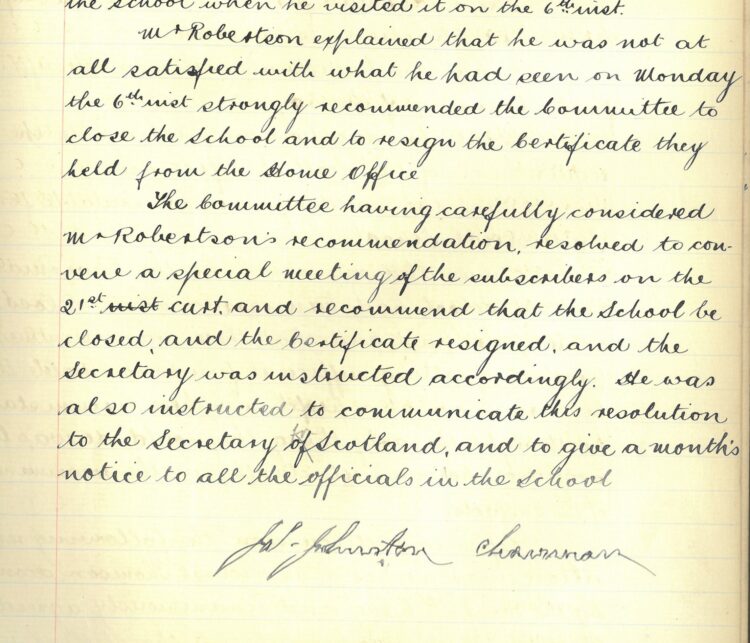 the school when he visited it on the 6th inst.
Mr Robertson explained that he was not at
all satisfied with what he had seen on Monday
the 6th inst strongly recommended the Committee to
close the School and to resign the Certificate they
held from the Home Office
The Committee having carefully considered
Mr Robertson's recommendation, resolved to con-
vene a special meeting of the subscribers on the
21st inst curt. and recommend that the School be
closed, and the Certificate resigned, and the
Secretary was instructed accordingly. He was
also instructed to communicate this resolution
to the Secretary of Scotland, and to give a month's
notice to all the officials in the School
Jas. Johnston Chairman